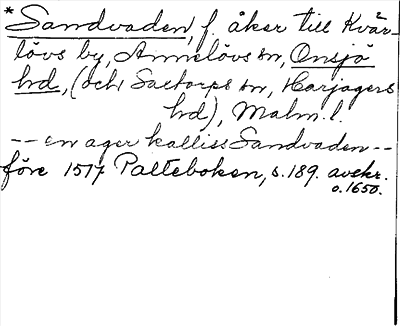 *Sandvaden, f. åker till Kvär-
lövs by, Annelövs sn, Onsjö
hd, (och Saxtorps sn, Harjagers
hd), Malm. l.
-- en ager kalliss Sandvaden --
före 1517 Palteboken, s. 189. avskr.
o. 1650.